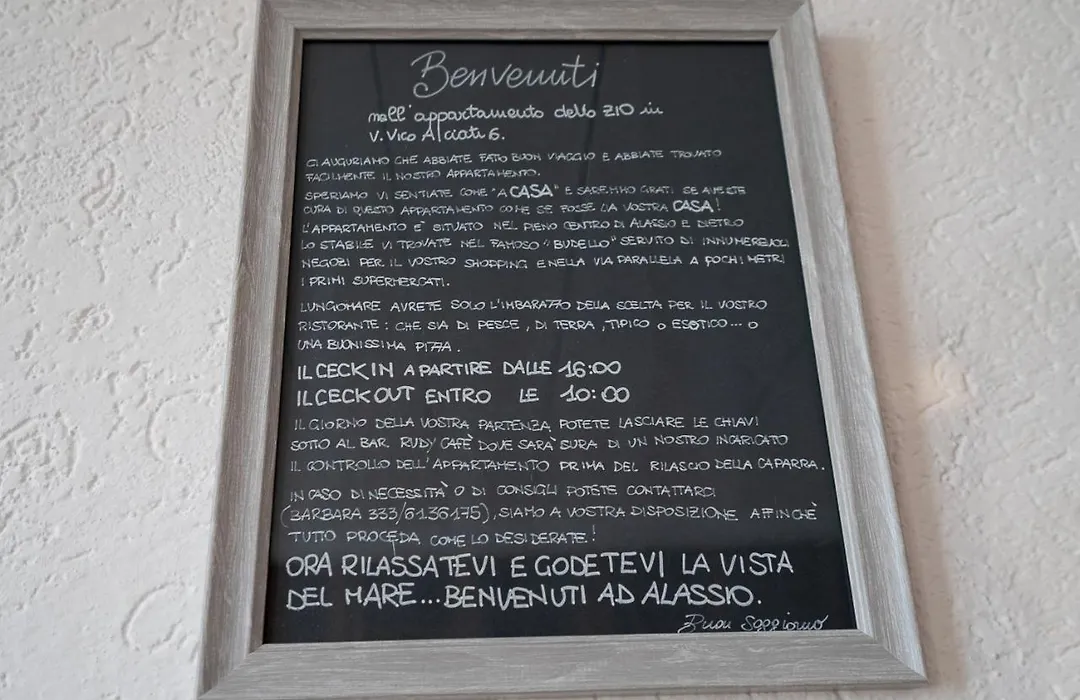 Benvenuti
nell'appartamento dello ZIO in
V. Vico Alciati 6.
CI AUGURIAMO CHE ABBIATE FATTO BUON VIAGGIO E ABBIATE TROVATO
FACILMENTE IL NOSTRO APPARTAMENTO.
SPERIAMO VI SENTIATE COME "A CASA" E SAREMMO GRATI SE AVESTE
CURA DI QUESTO APPARTAMENTO COME SE FOSSE LA VOSTRA CASA!
L'APPARTAMENTO E' SITUATO NEL PIENO CENTRO DI ALASSIO E DIETRO
LO STABILE VI TROVATE NEL FAMOSO "BUDELLO" SERVITO DI INNUMEREVOLI
NEGOZI PER IL VOSTRO SHOPPING E NELLA VIA PARALLELA A POCHI METRI
I PRIMI SUPERMERCATI.
LUNGOMARE AVRETE SOLO L'IMBARAZZO DELLA SCELTA PER IL VOSTRO
RISTORANTE: CHE SIA DI PESCE, DI TERRA, TIPICO O ESOTICO... O
UNA BUONISSIMA PIZZA.
IL CECK IN A PARTIRE DALLE 16:00
IL CECK OUT ENTRO LE 10:00
IL GIORNO DELLA VOSTRA PARTENZA POTETE LASCIARE LE CHIAVI
SOTTO AL BAR. RUDY CAFÈ DOVE SARÀ SURA DI UN NOSTRO INCARICATO
IL CONTROLLO DELL'APPARTAMENTO PRIMA DEL RILASCIO DELLA CAPARRA.
IN CASO DI NECESSITÀ O DI CONSIGLI POTETE CONTATTARCI
(BARBARA 333/6136175), SIAMO A VOSTRA DISPOSIZIONE AFFINCHÈ
TUTTO PROCEDA COME LO DESIDERATE!
ORA RILASSATEVI E GODETEVI LA VISTA
DEL MARE... BENVENUTI AD ALASSIO.
Buon Soggiorno